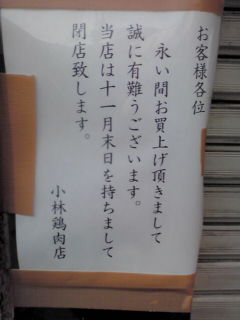 お客様各位
永い間お買上げ頂きまして
誠に有難うございます。
当店は十一月末日を持ちまして
閉店致します。
小林鶏肉店